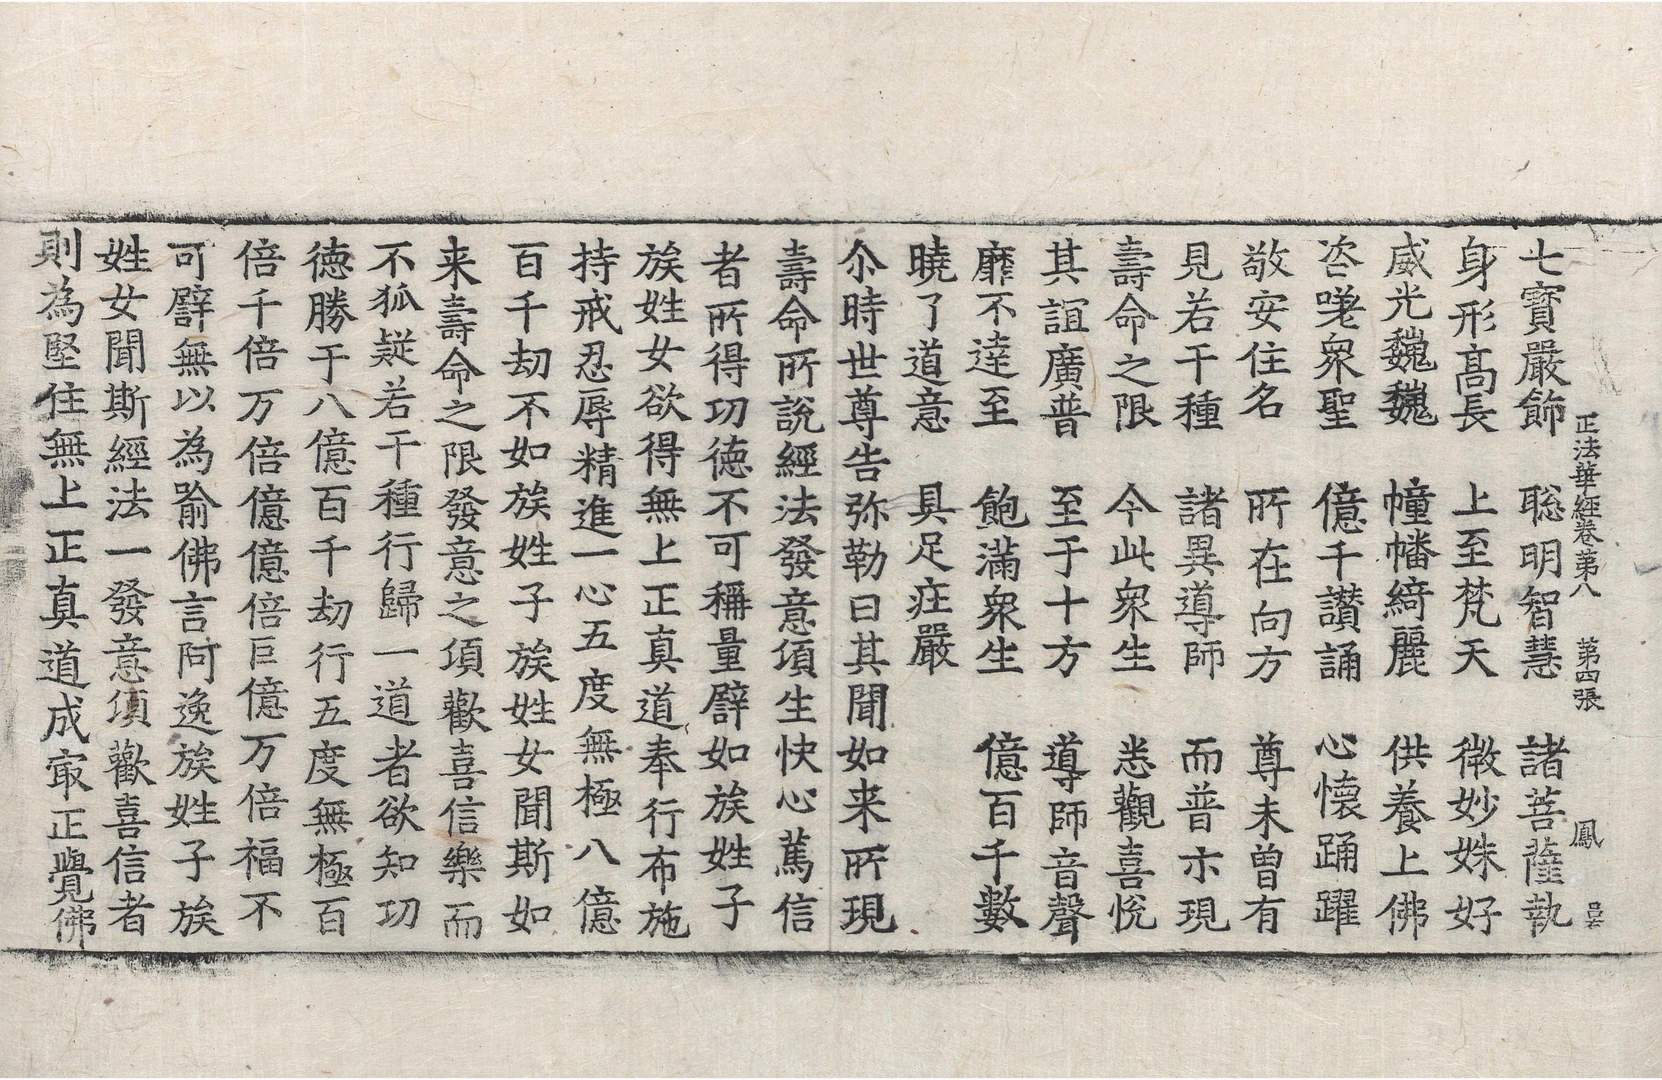 正法華經卷第八 第四張 鳳
七寶嚴飾 聡明智慧 諸菩薩執
身形髙長 上至梵天 微妙姝好
威光巍巍 幢幡綺麗 供養上佛
咨嗟衆聖 億千讃誦 心懷踊躍
敬安住名 所在向方 尊未曽有
見若干種 諸異導師 而普亦現
壽命之限 今此衆生 悉觀喜恱
其誼廣普 至于十方 導師音聲
靡不達至 飽滿衆生 億百千數
曉了道意 具足庄嚴
尒時世尊告弥勒曰其聞如来所現
壽命所說經法發意頃生快心篤信
者所得功德不可稱量譬如族姓子
族姓女欲得無上正真道奉行布施
持戒忍辱精進一心五度無極八億
百千劫不如族姓子族姓女聞斯如
来壽命之限發意之頃歡喜信樂而
不狐疑若干種行歸一道者欲知功
德勝于八億百千劫行五度無極百
倍千倍万倍億億倍巨億万倍福不
可譬無以為喻佛言阿逸族姓子族
姓女聞斯經法一發意頃歡喜信者
則為堅住無上正真道成㝡正覺佛